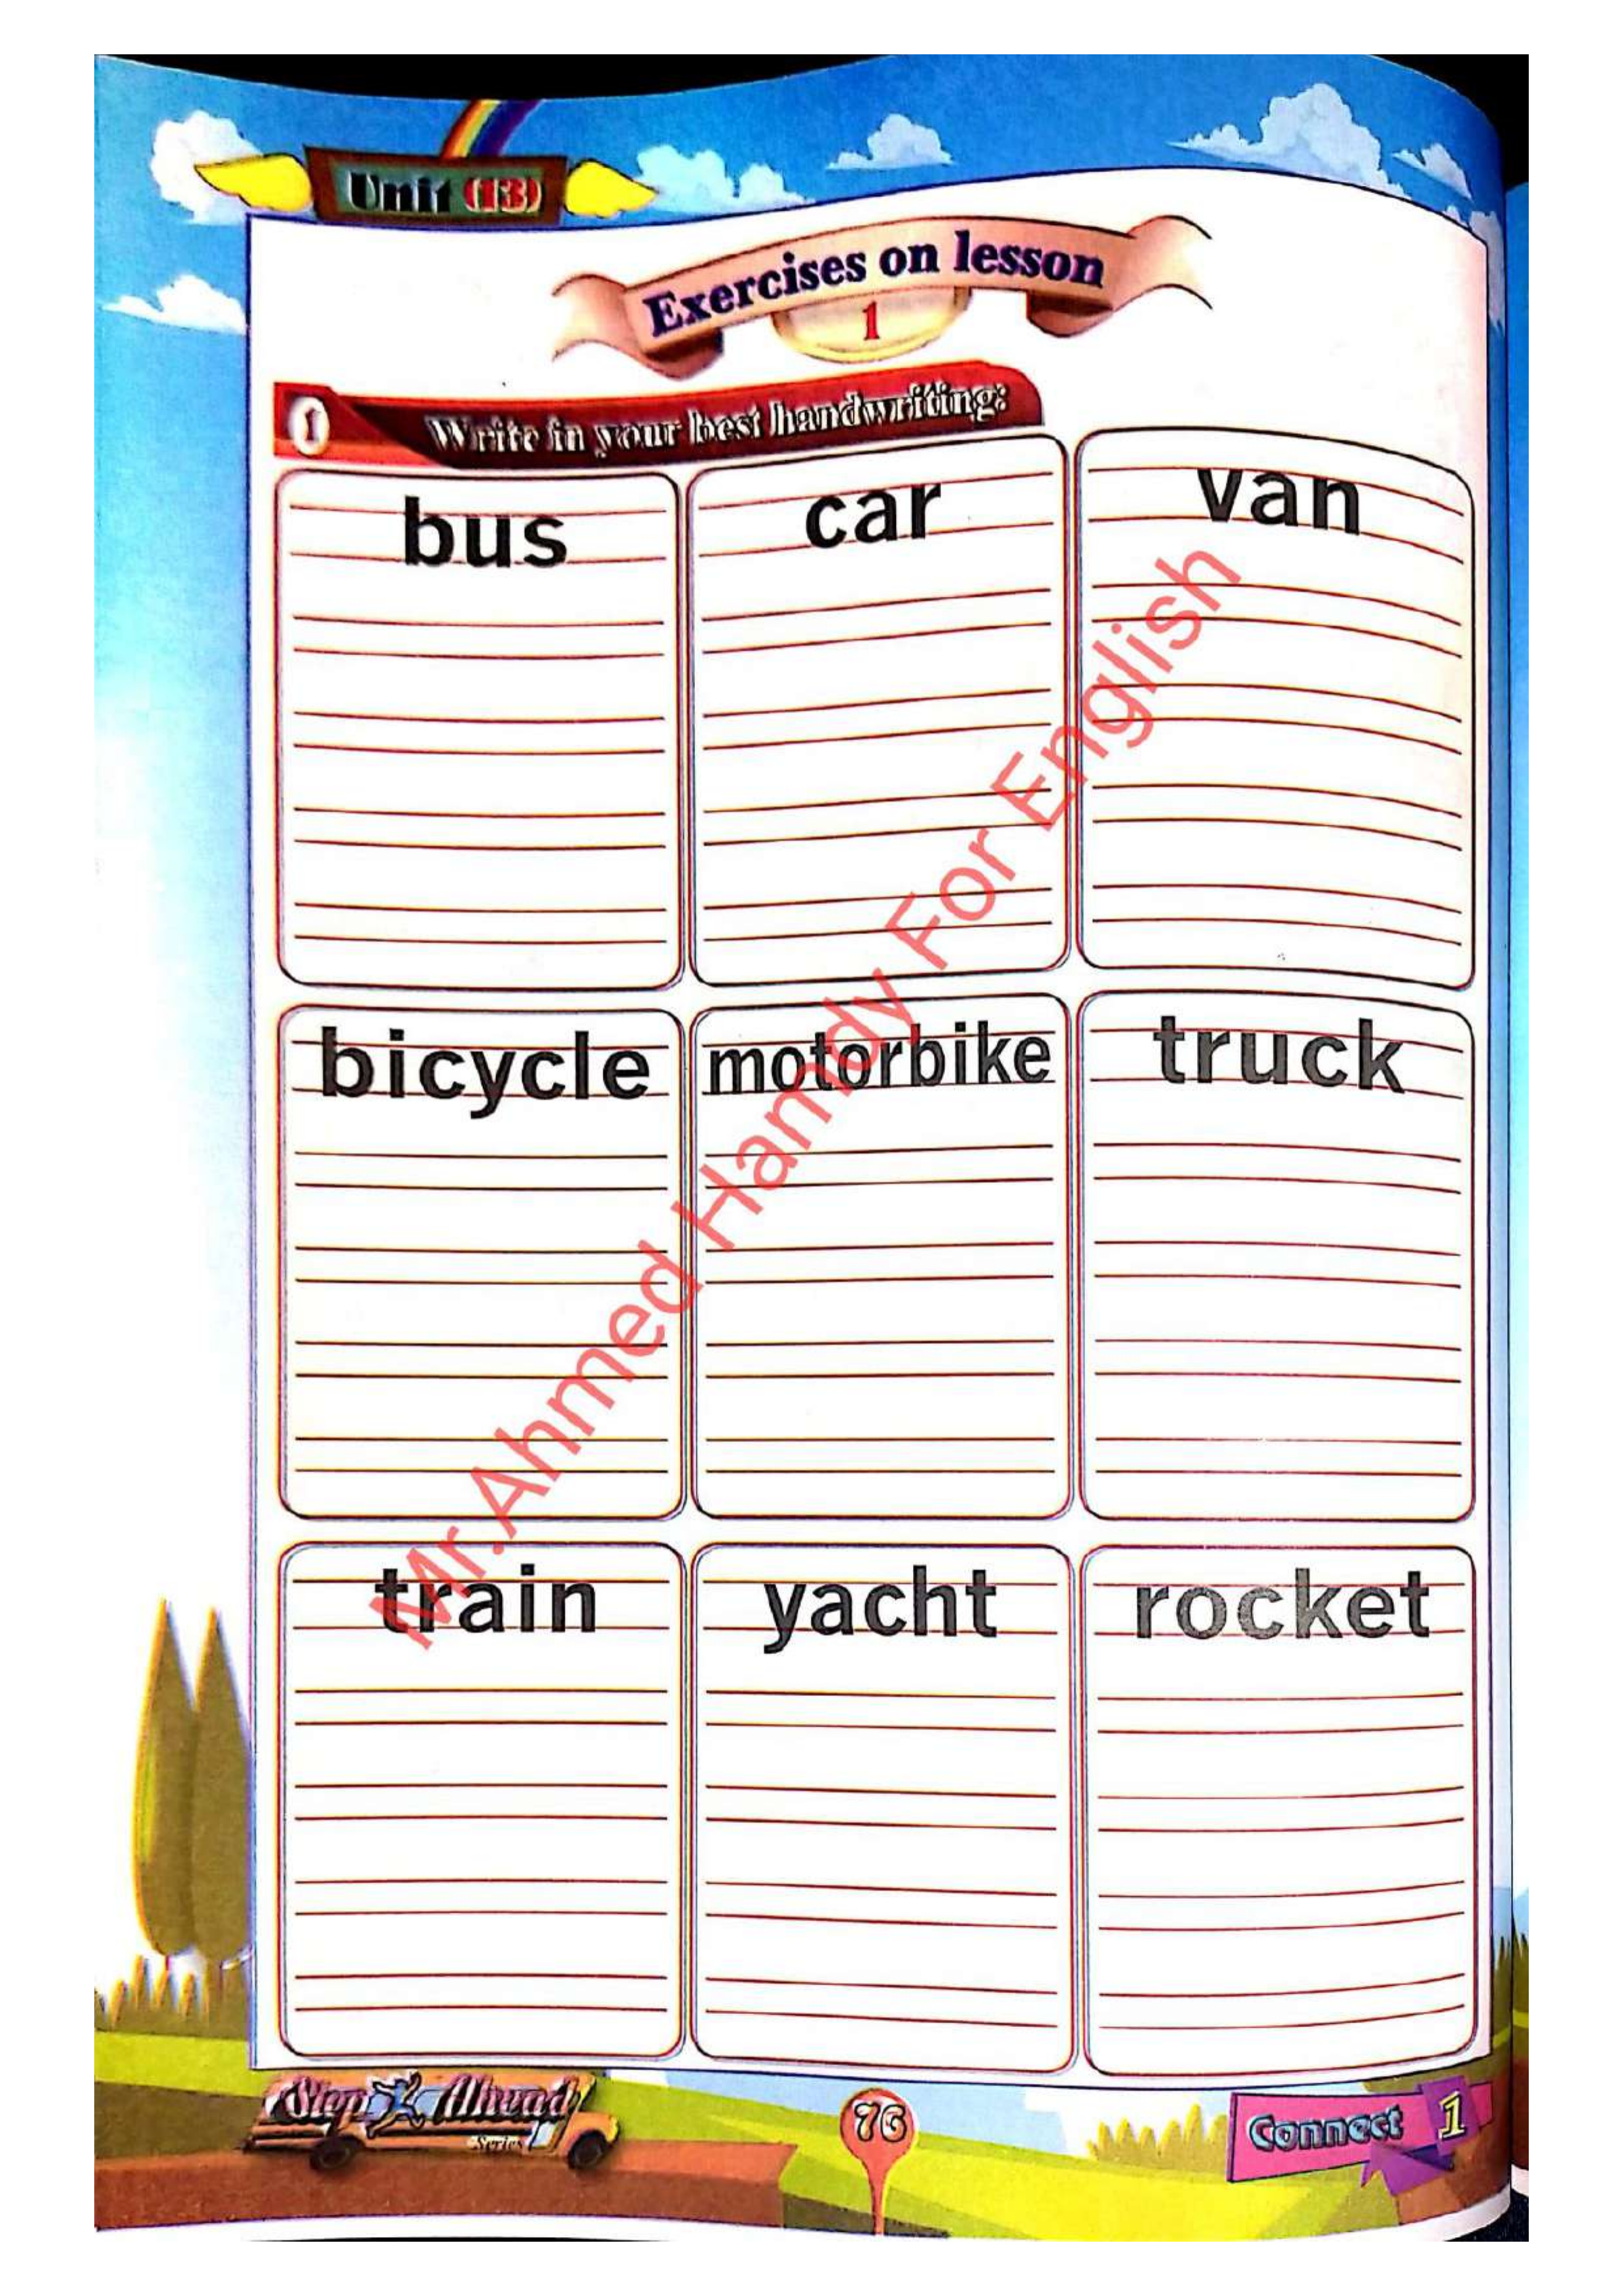 Unit (13)
Exercises on lesson
1
1 Write in your best handwriting:
bus car van
bicycle motorbike truck
train yacht rocket
Mr.Ahmed Hamdy For English
Step Ahead
Series
76
Connect 1